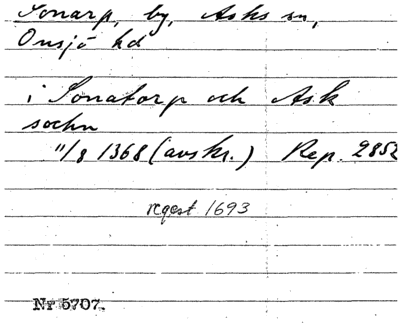 Sonarp, by, Asks sn,
Onsjö hd
i Sonatorp och Ask
sochn
11/8 1368 (avskr.) Rep. 2852
regest 1693
Nr 5707.